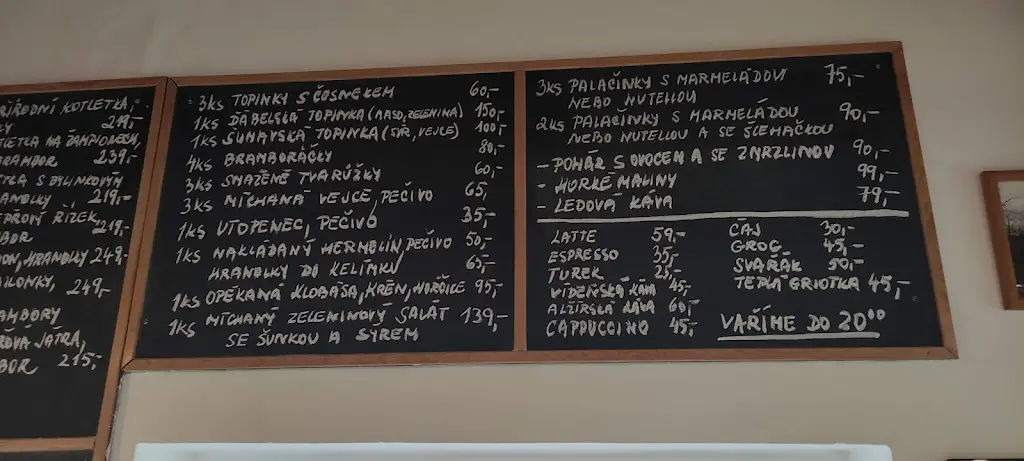 KOTLETKA,
219,-
NA ŽAMPIONECH,
BRAMBOR 239,-
S BYLINKOVÝM
219,-
ŘÍZEK,
219,-
HRANOLKY 249,-
249,-
JÁTRA,
215,-
3KS TOPINKY S ČESNEKEM 60,-
1KS ĎÁBELSKÁ TOPINKA (MASO, ZELENINA) 150,-
1KS ŠUMAVSKÁ TOPINKA (SÝR, VEJCE) 100,-
4KS BRAMBORÁČKY 80,-
3KS SMAŽENÉ TVARŮŽKY 60,-
3KS MÍCHANÁ VEJCE, PEČIVO 65,-
1KS UTOPENEC, PEČIVO 35,-
1KS NAKLÁDANÝ HERMELÍN, PEČIVO 50,-
HRANOLKY DO KELÍMKU 65,-
1KS OPÉKANÁ KLOBÁSA, KŘEN, HOŘČICE 95,-
1KS MÍCHANÝ ZELENINOVÝ SALÁT 139,-
SE ŠUNKOU A SÝREM
3KS PALAČINKY S MARMELÁDOU 75,-
NEBO NUTELLOU
2KS PALAČINKY S MARMELÁDOU 90,-
NEBO NUTELLOU A SE ŠLEHAČKOU
- POHÁR S OVOCEM A SE ZMRZLINOU 90,-
- HORKÉ MALINY 99,-
- LEDOVÁ KÁVA 79,-
LATTE 59,- ČAJ 30,-
ESPRESSO 35,- GROG 45,-
TUREK 25,- SVAŘÁK 50,-
VÍDEŇSKÁ KÁVA 45,- TEPLÁ GRIOTKA 45,-
ALŽÍRSKÁ KÁVA 60,-
CAPPUCCINO 45,- VAŘÍME DO 20⁰⁰